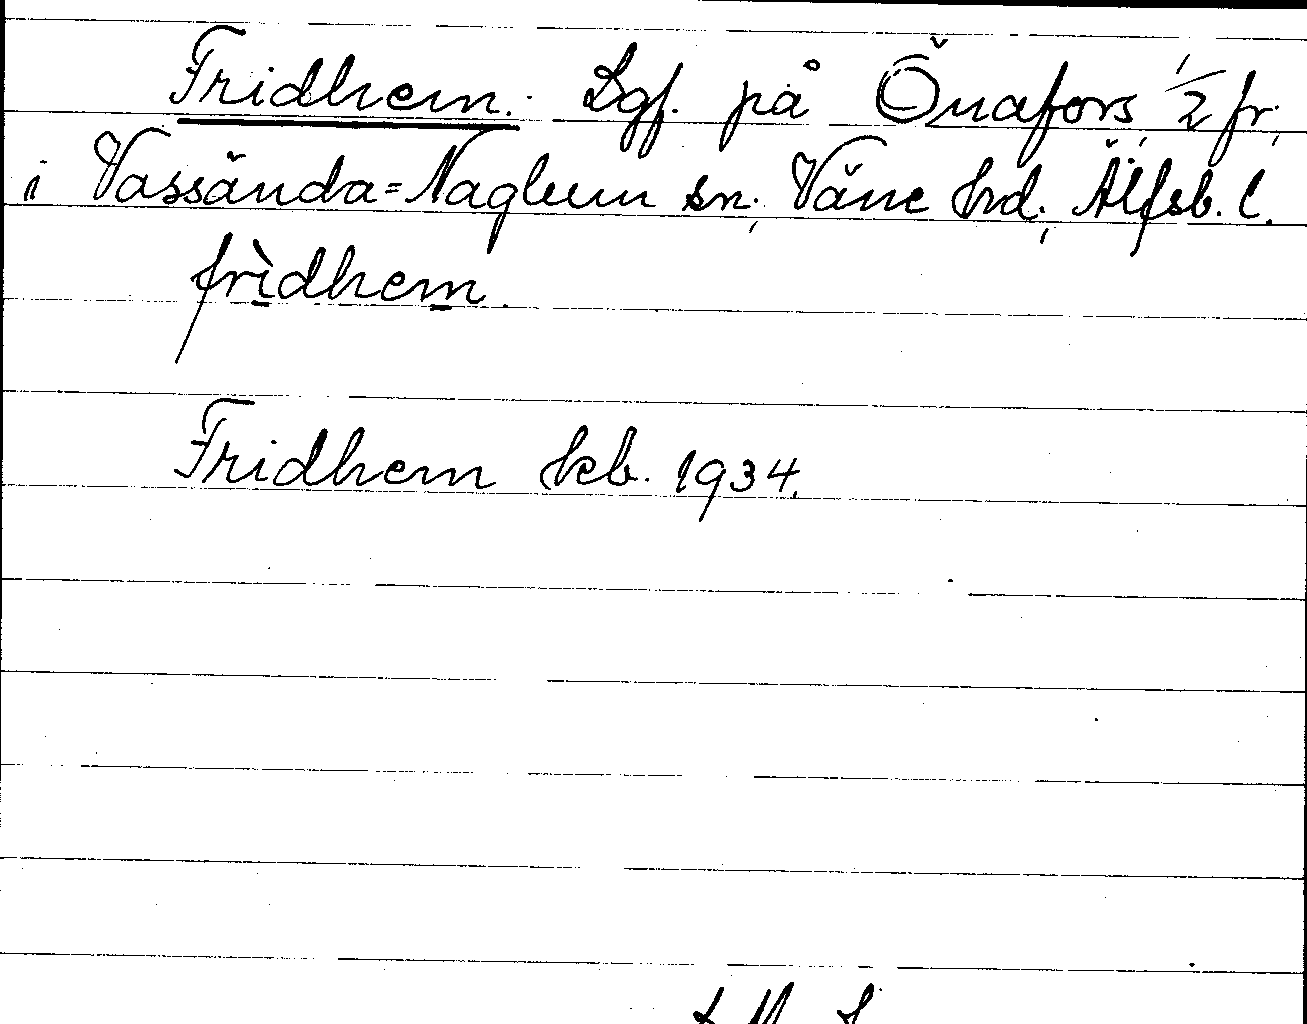 Fridhem. Lgf. på Önafors, 1/2 fr.,
i Vassända=Naglum sn., Väne hrd., Älfsb. l.
frìdhem.
Fridhem kb. 1934.